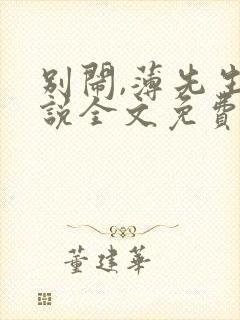 別鬧,薄先生
說全文免費
董建華